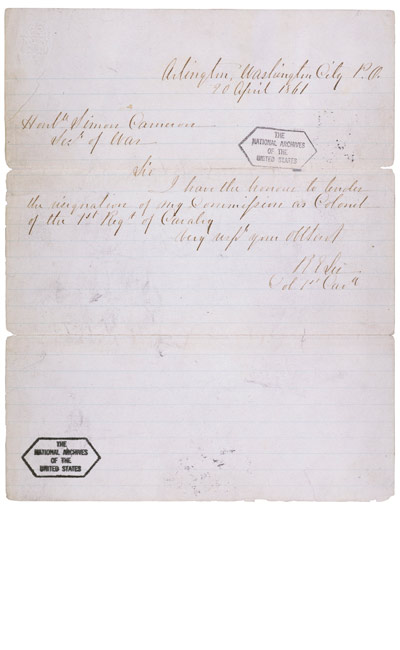 Arlington, Washington City P.O.
20 April 1861
Honble Simon Cameron
Secy of War
THE
NATIONAL ARCHIVES
OF THE
UNITED STATES
Sir
I have the honour to tender
the resignation of my Commission as Colonel
of the 1st Regt of Cavalry
Very respy your Obt Servt
R E Lee
Col 1st Cavy
THE
NATIONAL ARCHIVES
OF THE
UNITED STATES